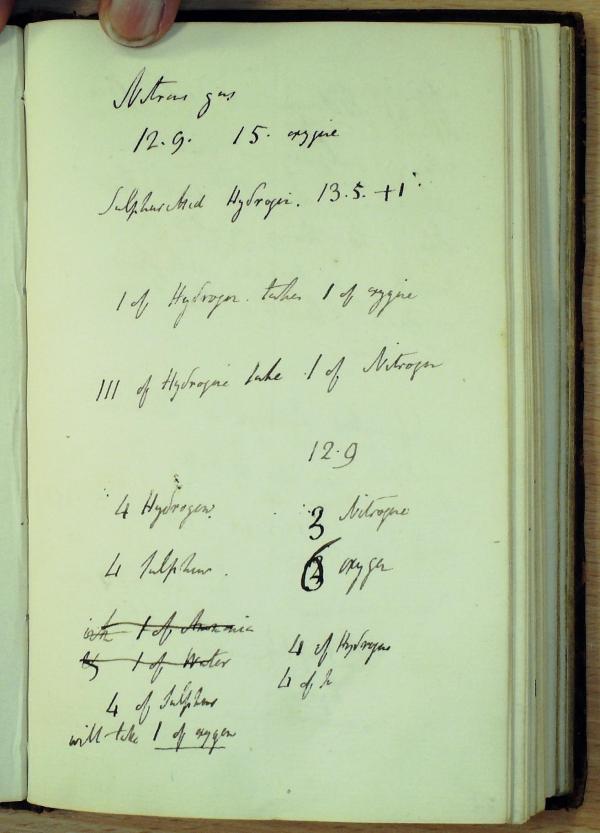 Nitrous gas
12.9. 15. oxygene
Sulphuretted Hydrogen. 13.5. +1
1 of Hydrogen. takes 1 of oxygene
111 of Hydrogene take 1 of Nitrogen
12.9
4 Hydrogen. 3 Nitrogene
4 Sulphur. 6 oxygen
1 of Ammonia
1 of Water
4 of Hydrogen
4 of
4 of Sulphur
will take 1 of oxygen